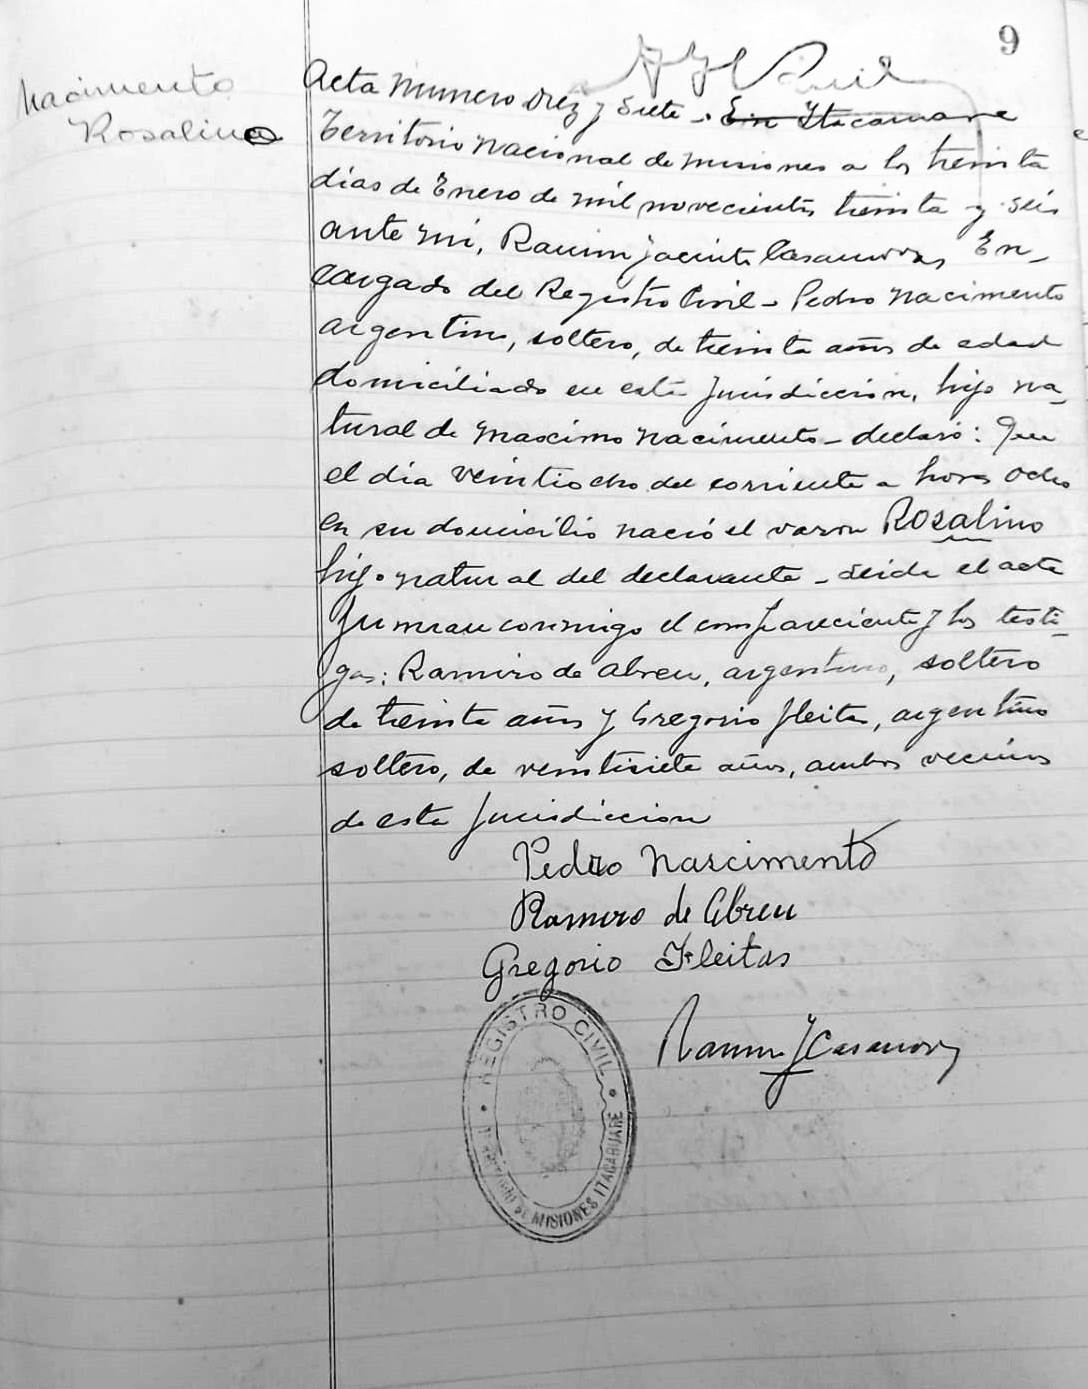 9
Nacimento
Rosalino
Acta Numero Diez y Siete -. En Itacaruare
Territorio Nacional de Misiones a los treinta
días de Enero de mil novecientos treinta y seis
ante mí, Ramon Jacinto Casanovas, En-
cargado del Registro Civil - Pedro Nacimento
argentino, soltero, de treinta años de edad
domiciliado en esta Jurisdicción, hijo na-
tural de Maximo Nacimento - declaró: Que
el día veintiocho del corriente a horas ocho
en su domicilio nació el varon Rosalino
hijo natural del declarante - Leida el acta
firmaron conmigo el compareciente y los testi-
gos: Ramiro de Abreu, argentino, soltero
de treinta años y Gregorio Fleitas, argentino
soltero, de veintisiete años, ambos vecinos
de esta Jurisdiccion
Pedro Nascimento
Ramiro de Abreu
Gregorio Fleitas
Ramon J Casanovas
REGISTRO CIVIL
TERRITORIO DE MISIONES ITACARUARÉ